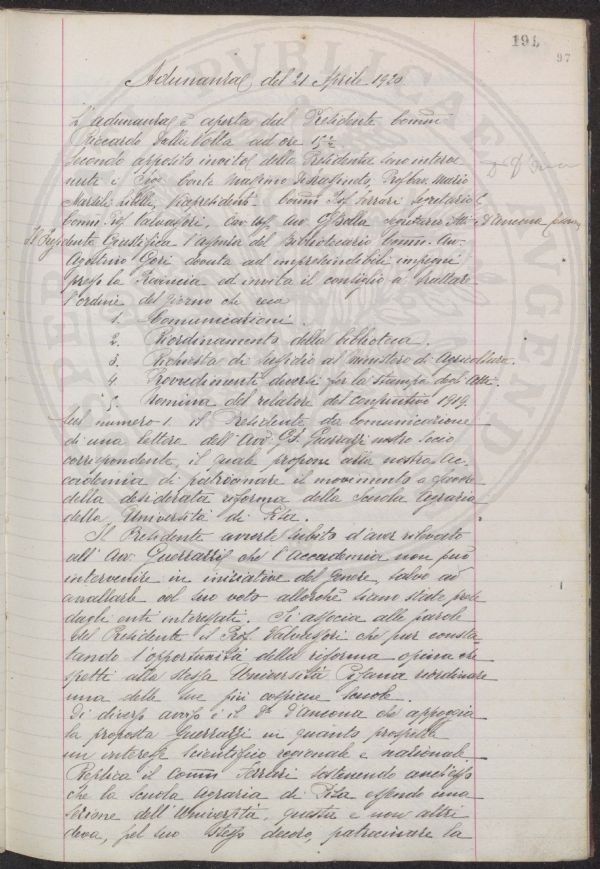 191
97
Adunanza del 21 Aprile 1920
L'adunanza è aperta dal Presidente Comm.
Riccardo Dalla Volta ad ore 15 1/2
Secondo apposito invito della Presidenza sono interve
nute i Conte Massimo di Mario
vicepresidenti. Comm. Prof. Ferrari segretario
Comm. Prof. Valvassori, Cav. Av. segretario Atti. d'Ancona
Il Presidente Giustifica l'assenza del Bibliotecario Comm. Av.
Agostino Gori dovuta ad imprescindibili impegni
presso la Provincia ed invita il consiglio a trattare
l'ordine del giorno che reca
1. Comunicazioni.
2. Riordinamento della biblioteca.
3. Richiesta di sussidio al ministero di Agricoltura.
4. Provvedimenti diversi per la stampa degli Atti.
5. Nomina del relatore del consuntivo 1919.
Sul numero 1. il Presidente da comunicazione
di una lettera dell'Avv. Guerrazzi nostro socio
corrispondente, il quale propone alla nostra Ac-
cademia di patrocinare il movimento a favore
della desiderata riforma della Scuola Agraria
della Università di Pisa.
Il Presidente avverte subito d'aver rilevato
all'Avv. Guerrazzi che l'Accademia non può
intervenire in iniziative del genere, salvo ad
avallarle col suo voto allorchè siano state prese
dagli enti interessati. Si associa alle parole
del Presidente il Prof. Valvassori che pur consta-
tando l'opportunità della riforma opina che
spetti alla stessa Università Pisana riordinare
una delle sue più cospicue scuole.
Di diverso avviso è il Dr. d'Ancona che appoggia
la proposta Guerrazzi in quanto prospetta
un interesse scientifico regionale e nazionale
Replica il Comm. Ferrari sostenendo anch'esso
che la scuola agraria di Pisa essendo una
sezione dell'Università, questa e non altri
deva, pel suo stesso decoro, patrocinare la